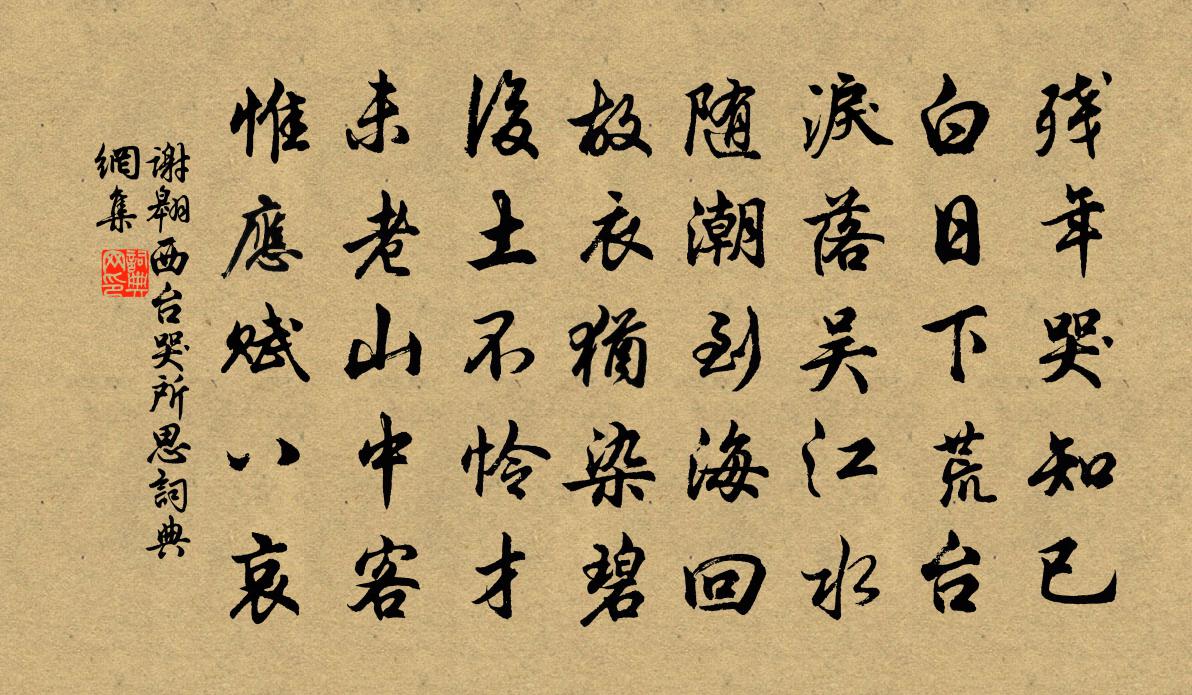 残年哭知己
白日下荒台
淚落吴江水
随潮到海回
故衣猶染碧
後土不怜才
未老山中客
惟應賦八哀
謝翱西台哭所思詞典
網集
詞典
网印